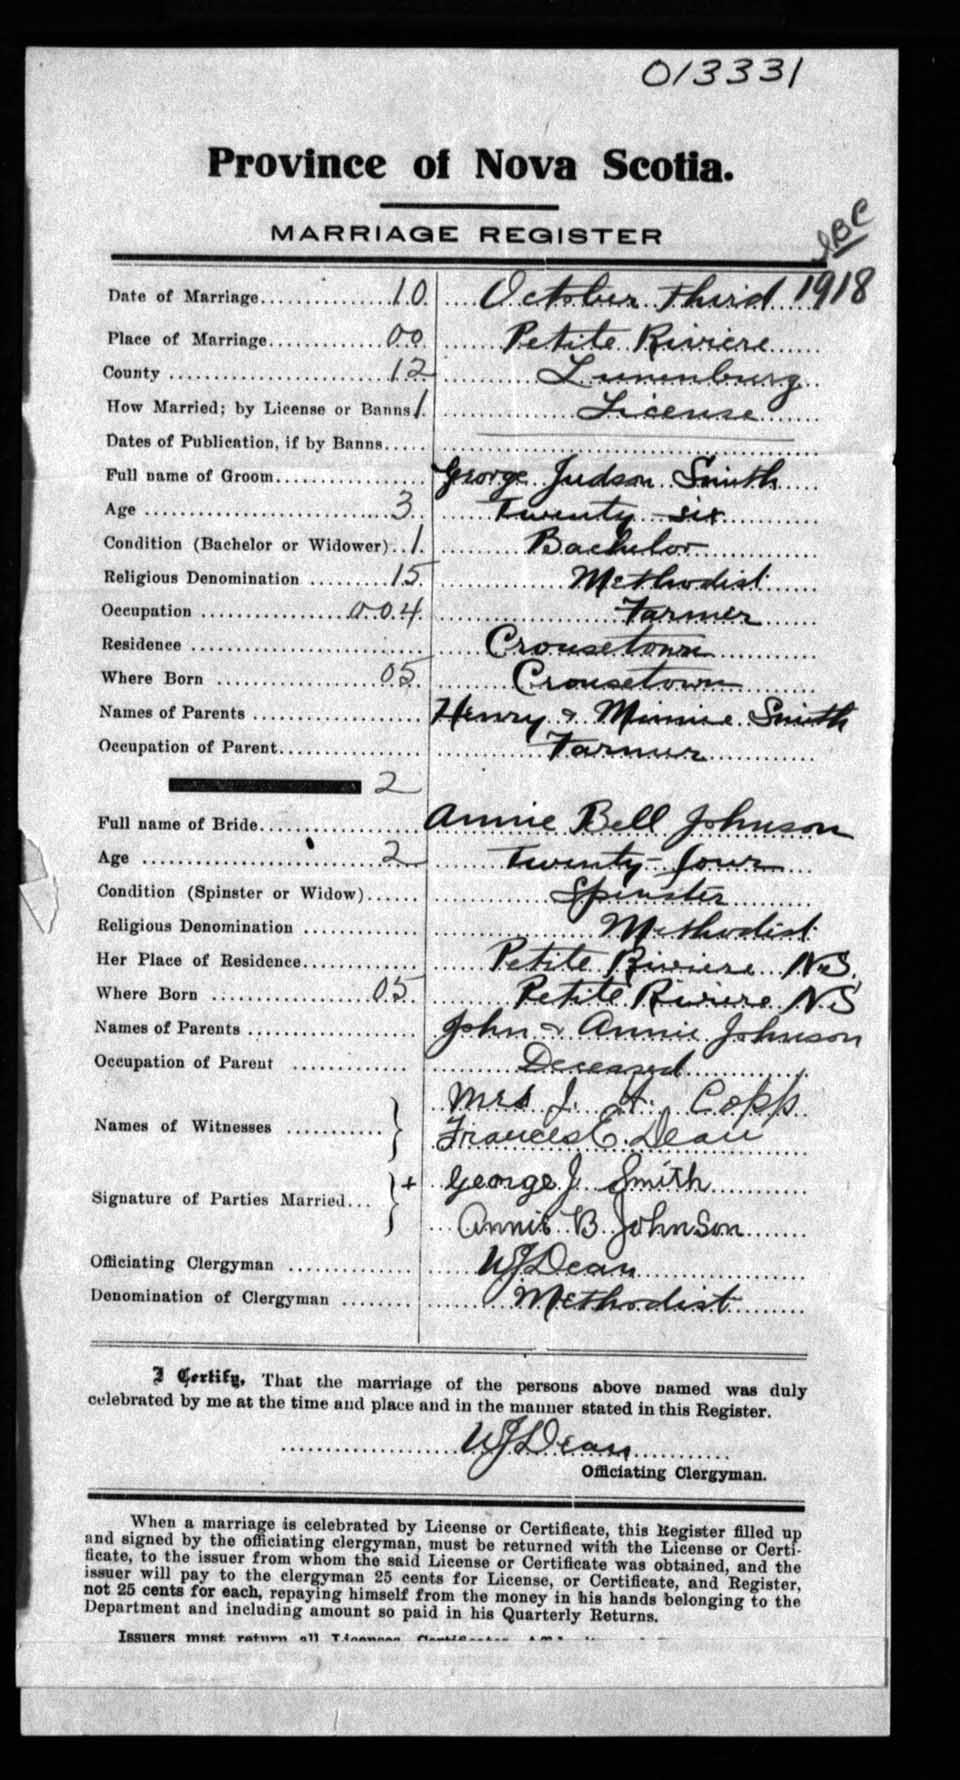 013331
Province of Nova Scotia.
MARRIAGE REGISTER
Date of Marriage 10 October third 1918
Place of Marriage 00 Petite Riviere
County 12 Lunenburg
How Married; by License or Banns 1 License
Dates of Publication, if by Banns
Full name of Groom George Judson Smith
Age 3 Twenty six
Condition (Bachelor or Widower) 1 Bachelor
Religious Denomination 15 Methodist
Occupation 004 Farmer
Residence Crousetown
Where Born 05 Crousetown
Names of Parents Henry & Minnie Smith
Occupation of Parent Farmer
2
Full name of Bride Annie Bell Johnson
Age 2 Twenty-four
Condition (Spinster or Widow) Spinster
Religious Denomination Methodist
Her Place of Residence Petite Riviere N.S.
Where Born 05 Petite Riviere N.S
Names of Parents John & Annie Johnson
Occupation of Parent Deceased
Mrs J. A. Copp
Names of Witnesses
Frances E. Dean
George J. Smith
Signature of Parties Married +
Annie B Johnson
Officiating Clergyman WJ Dean
Denomination of Clergyman Methodist
I Certify, That the marriage of the persons above named was duly
celebrated by me at the time and place and in the manner stated in this Register.
WJ Dean
Officiating Clergyman.
When a marriage is celebrated by License or Certificate, this Register filled up
and signed by the officiating clergyman, must be returned with the License or Certi-
ficate, to the issuer from whom the said License or Certificate was obtained, and the
issuer will pay to the clergyman 25 cents for License, or Certificate, and Register,
not 25 cents for each, repaying himself from the money in his hands belonging to the
Department and including amount so paid in his Quarterly Returns.
Issuers must return all Licenses, Certificates,